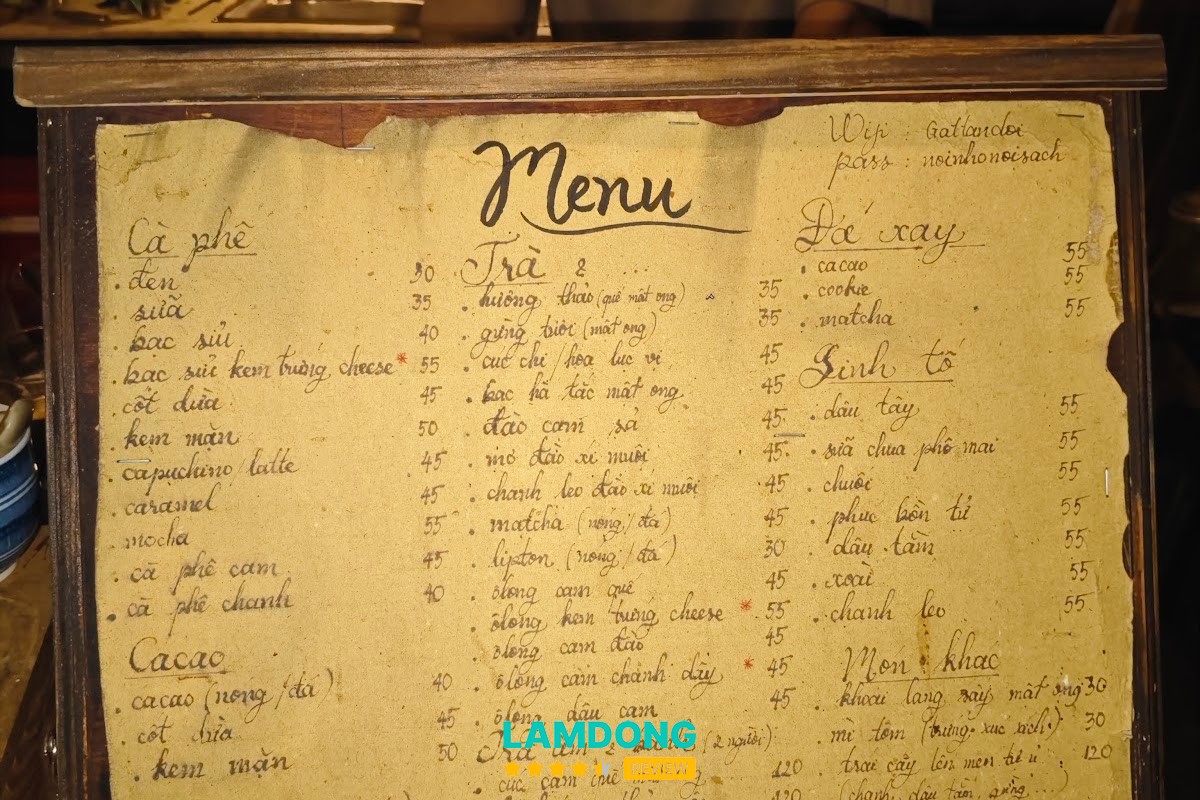 Menu
Wifi : Gattandoi
pass : noinhonoisach
Cà phê
. đen 30
. sữa 35
. bạc sửu 40
. bạc sửu kem trứng cheese* 55
. cốt dừa 45
. kem mặn 50
. capuchino/latte 45
. caramel 45
. mocha 55
. cà phê cam 45
. cà phê chanh 40
Cacao
. cacao (nóng/đá) 40
. cốt dừa 45
. kem mặn 50
Trà
. hương thảo (quế mật ong) 35
. gừng tươi (mật ong) 35
. cúc chi/hoa lạc vị 45
. bạc hà tắc mật ong 45
. đào cam sả 45
. mơ đào xí muội 45
. chanh leo đào xí muội 45
. matcha (nóng/đá) 45
. lipton (nóng/đá) 30
. ôlong cam quế 45
. ôlong kem trứng cheese * 55
. ôlong cam đào 45
. ôlong cam chanh dây * 45
. ôlong dâu cam 45
Trà ấm & bánh (2 người)
. cúc cam quế 120
120
Đá xay
. cacao 55
. cookie 55
. matcha 55
Sinh tố
. dâu tây 55
. sữa chua phô mai 55
. chuối 55
. phúc bồn tử 55
. dâu tằm 55
. xoài 55
. chanh leo 55
Món khác
. khoai lang sấy mật ong 30
. mì tôm (trứng. xúc xích.) 30
. trái cây lên men tự ủ : 120
(chanh, dâu tằm, gừng...)
LAMDONG
REVIEW